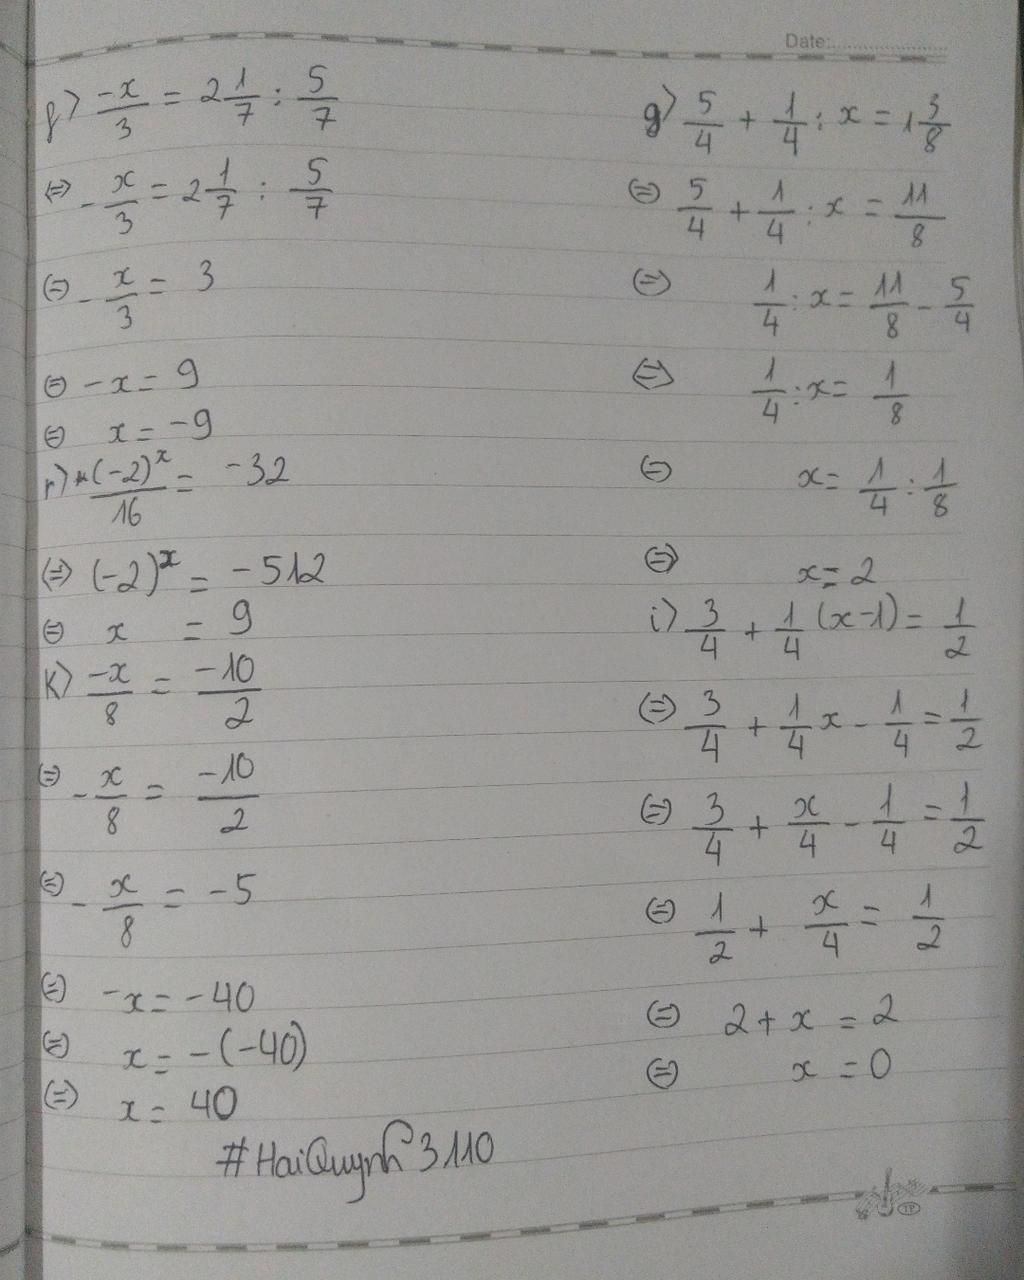 Date:
f) -x/3 = 2 1/7 : 5/7
⇔ - x/3 = 2 1/7 : 5/7
⇔ - x/3 = 3
⇔ -x = 9
⇔ x = -9
(-2)^x/16 = -32
⇔ (-2)^x = -512
⇔ x = 9
k) -x/8 = -10/2
⇔ - x/8 = -10/2
⇔ - x/8 = -5
⇔ -x = -40
⇔ x = -(-40)
⇔ x = 40
g) 5/4 + 1/4 : x = 1 3/8
⇔ 5/4 + 1/4 : x = 11/8
⇔ 1/4 : x = 11/8 - 5/4
⇔ 1/4 : x = 1/8
⇔ x = 1/4 : 1/8
⇔ x = 2
i) 3/4 + 1/4 (x-1) = 1/2
⇔ 3/4 + 1/4 x - 1/4 = 1/2
⇔ 3/4 + x/4 - 1/4 = 1/2
⇔ 1/2 + x/4 = 1/2
⇔ 2 + x = 2
⇔ x = 0
#HaiQuynh3110
TP